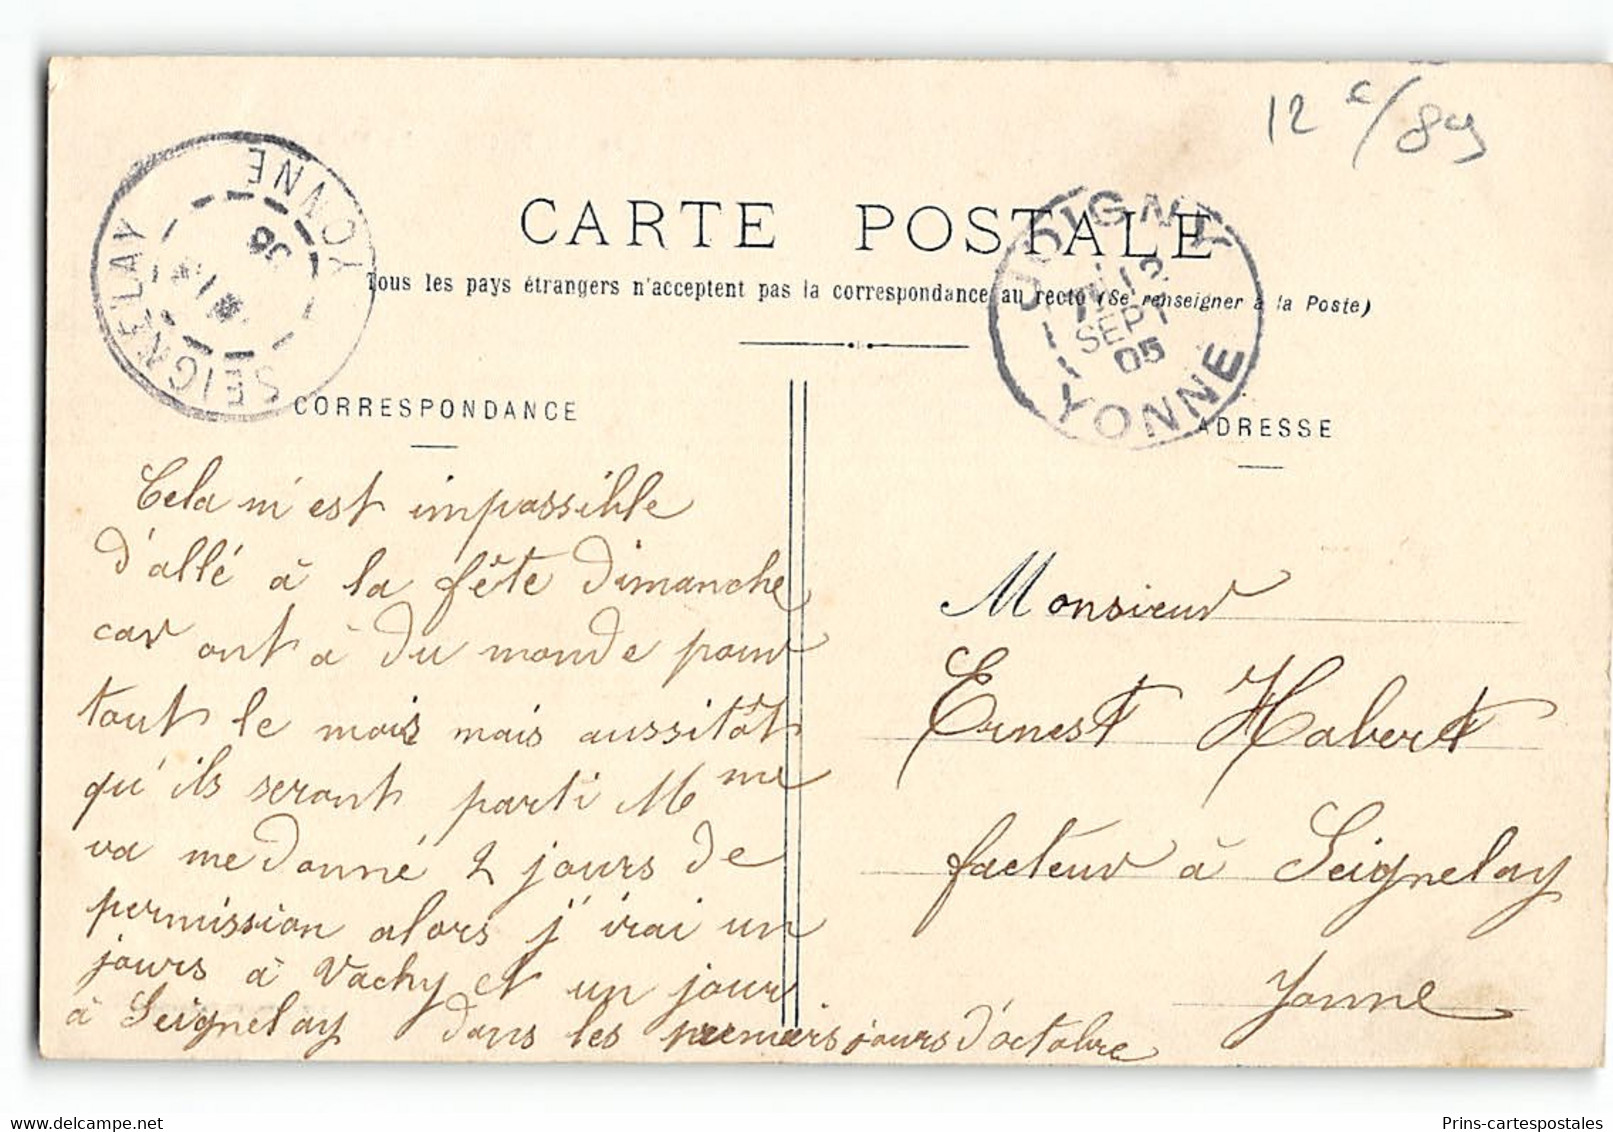 12 c/89
CARTE POSTALE
Tous les pays étrangers n'acceptent pas la correspondance au recto (Se renseigner à la Poste)
SEIGNELAY YONNE
YONNE
SEPT
05
CORRESPONDANCE
ADRESSE
Cela m'est impossible
d'allé à la fête dimanche
car ont à du monde pour
tout le mois mais aussitôt
qu'ils seront parti Mme
va me donné 2 jours de
permission alors j'irai un
jours à Vachy et un jour
à Seignelay dans les premiers jours d'octobre
Monsieur
Ernest Habert
facteur à Seignelay
Yonne
Delcampe.net
Prins-cartespostales